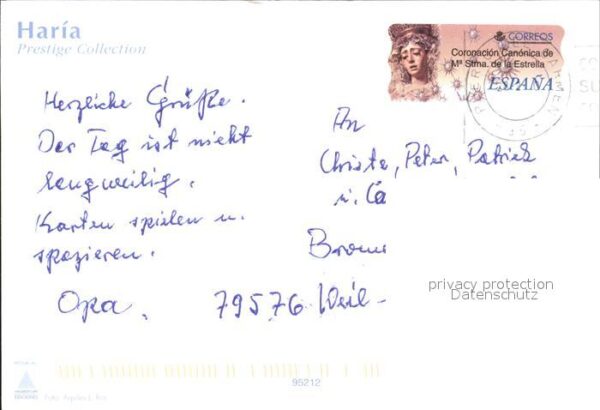 Haría
Prestige Collection
CORREOS
Coronación Canónica de
Mª Stma. de la Estrella
ESPAÑA
Herzliche Grüße.
Der Tag ist nicht
langweilig.
Karten spielen u.
spazieren.
Opa.
An
Christa, Peter, Patrick
u. Ca
79576 Weil-
privacy protection
Datenschutz
95212